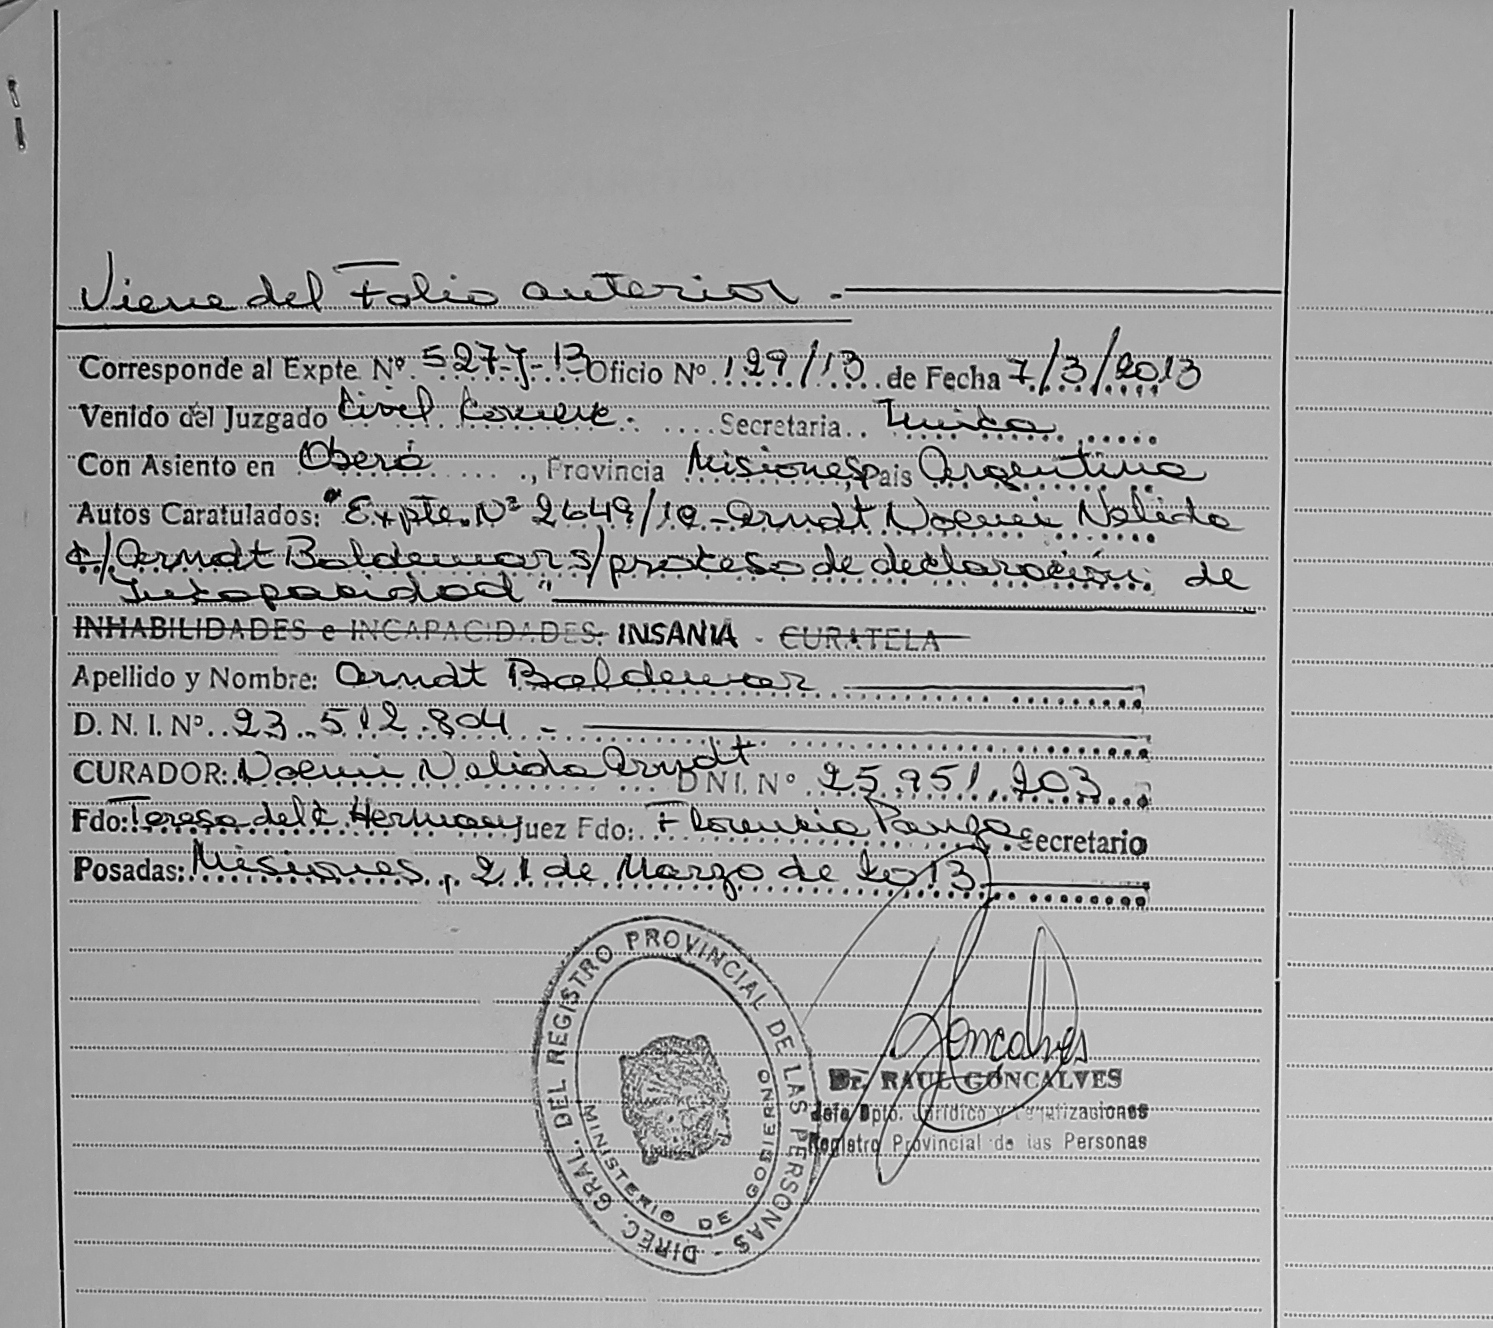 Viene del Folio anterior.-
Corresponde al Expte Nº 527-J-13 Oficio Nº 129/13 de Fecha 7/3/2013
Venido del Juzgado Civil Comerc. Secretaria Unica
Con Asiento en Oberá, Provincia Misiones, pais Argentina
Autos Caratulados: "Expte. Nº 2649/10 - Arndt Noemi Nelida
c/ Arndt Baldemar s/ proceso de declaración de
Incapacidad"
INHABILIDADES e INCAPACIDADES: INSANIA - CURATELA
Apellido y Nombre: Arndt Baldemar
D. N. I. Nº 23.512.804 -
CURADOR: Noemi Nelida Arndt DNI. Nº 25.951.203
Fdo: Teresa del C. Juez Fdo: Florencia Secretario
Posadas: Misiones, 21 de Marzo de 2013
DIREC. GRAL. DEL REGISTRO PROVINCIAL DE LAS PERSONAS -
MINISTERIO DE GOBIERNO
Goncalves
Dr. RAUL GONCALVES
Jefe Dpto. Jurídico y Legalizaciones
Registro Provincial de las Personas